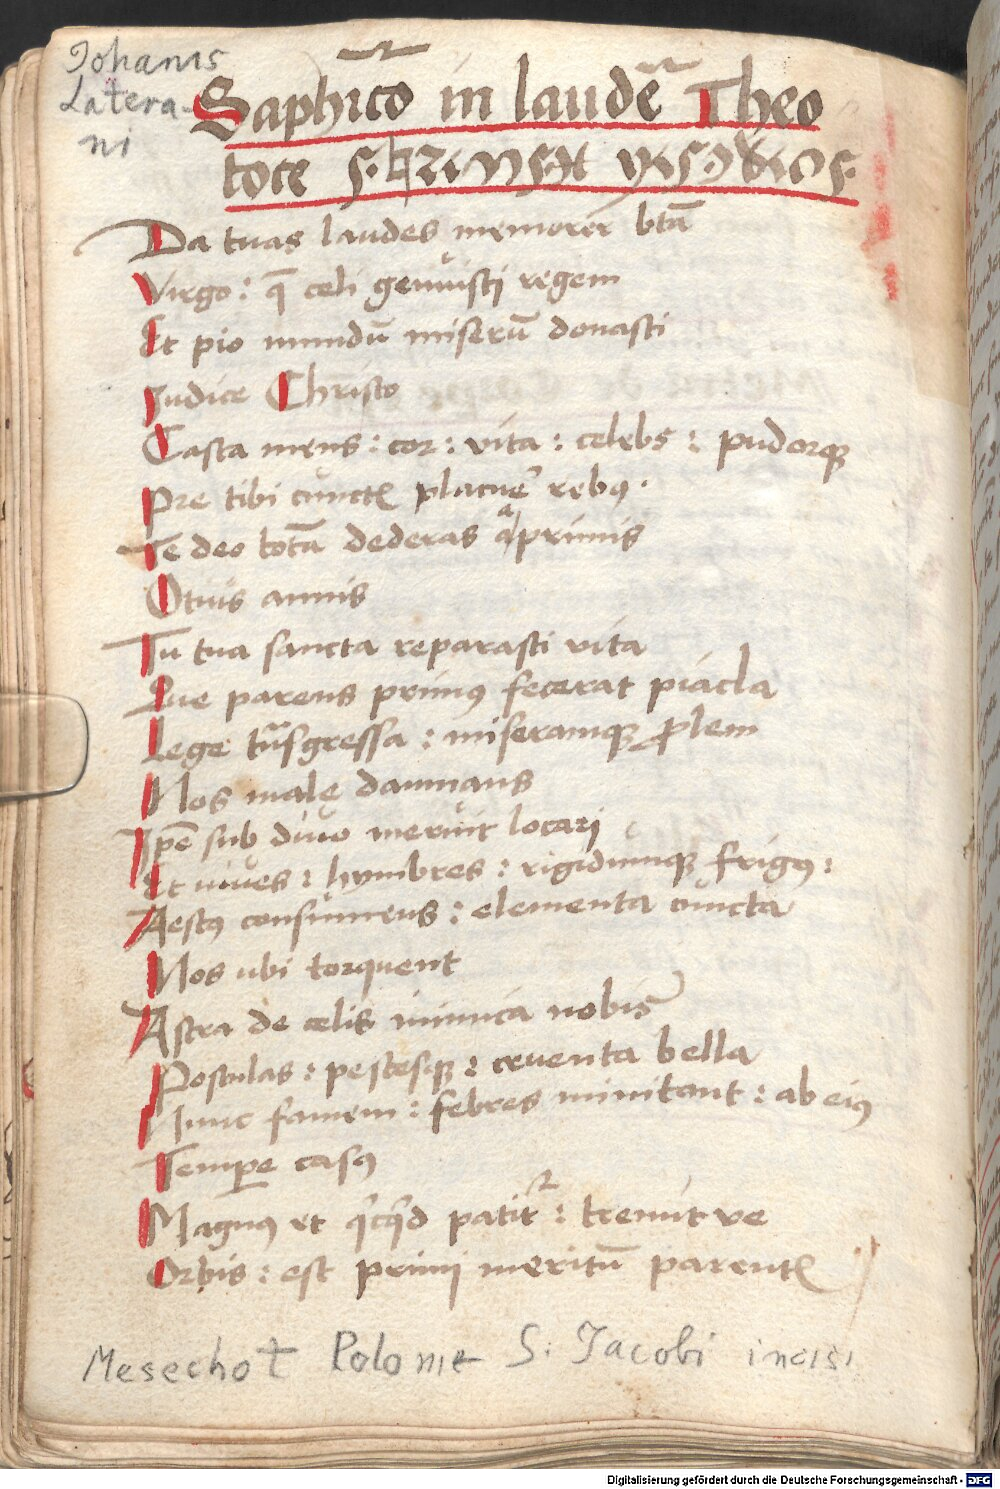 Johanis
Latera-
ni
Saphicō in laudē Theo
toce
Da tuas laudes memorer btā
Virgo: q̄ celi genuisti regem
Et pio mundū miserū donasti
Judice Christo
Casta mens: cor: vita: celebs: pudorqꝫ
Pre tibi cunctꝭ placuēr rebꝯ.
Te deo totā dederas a primis
Otius annis
Tu tua sancta reparasti vita
Que parens primꝯ fecerat piacla
Lege trāsgressa: miseramqꝫ ꝓlem
Nos male damnans
Ipē sub diuo meruit locari
Et niues: hymbres: rigidumqꝫ frigꝯ:
Aestꝯ consumens: elementa cuncta
Nos ubi torquent
Astra de celis inimica nobis
Postulas: pestesqꝫ: cruenta bella
Nunc famem: febres minitant: ab eiꝯ
Tempꝑe casꝯ
Magnꝯ et qͥcqͥd patit᷑: tremit ve
Orbis: est primi meritū parentꝭ
Mesechot Polonie S: Jacobi incisi
Digitalisierung gefördert durch die Deutsche Forschungsgemeinschaft - DFG